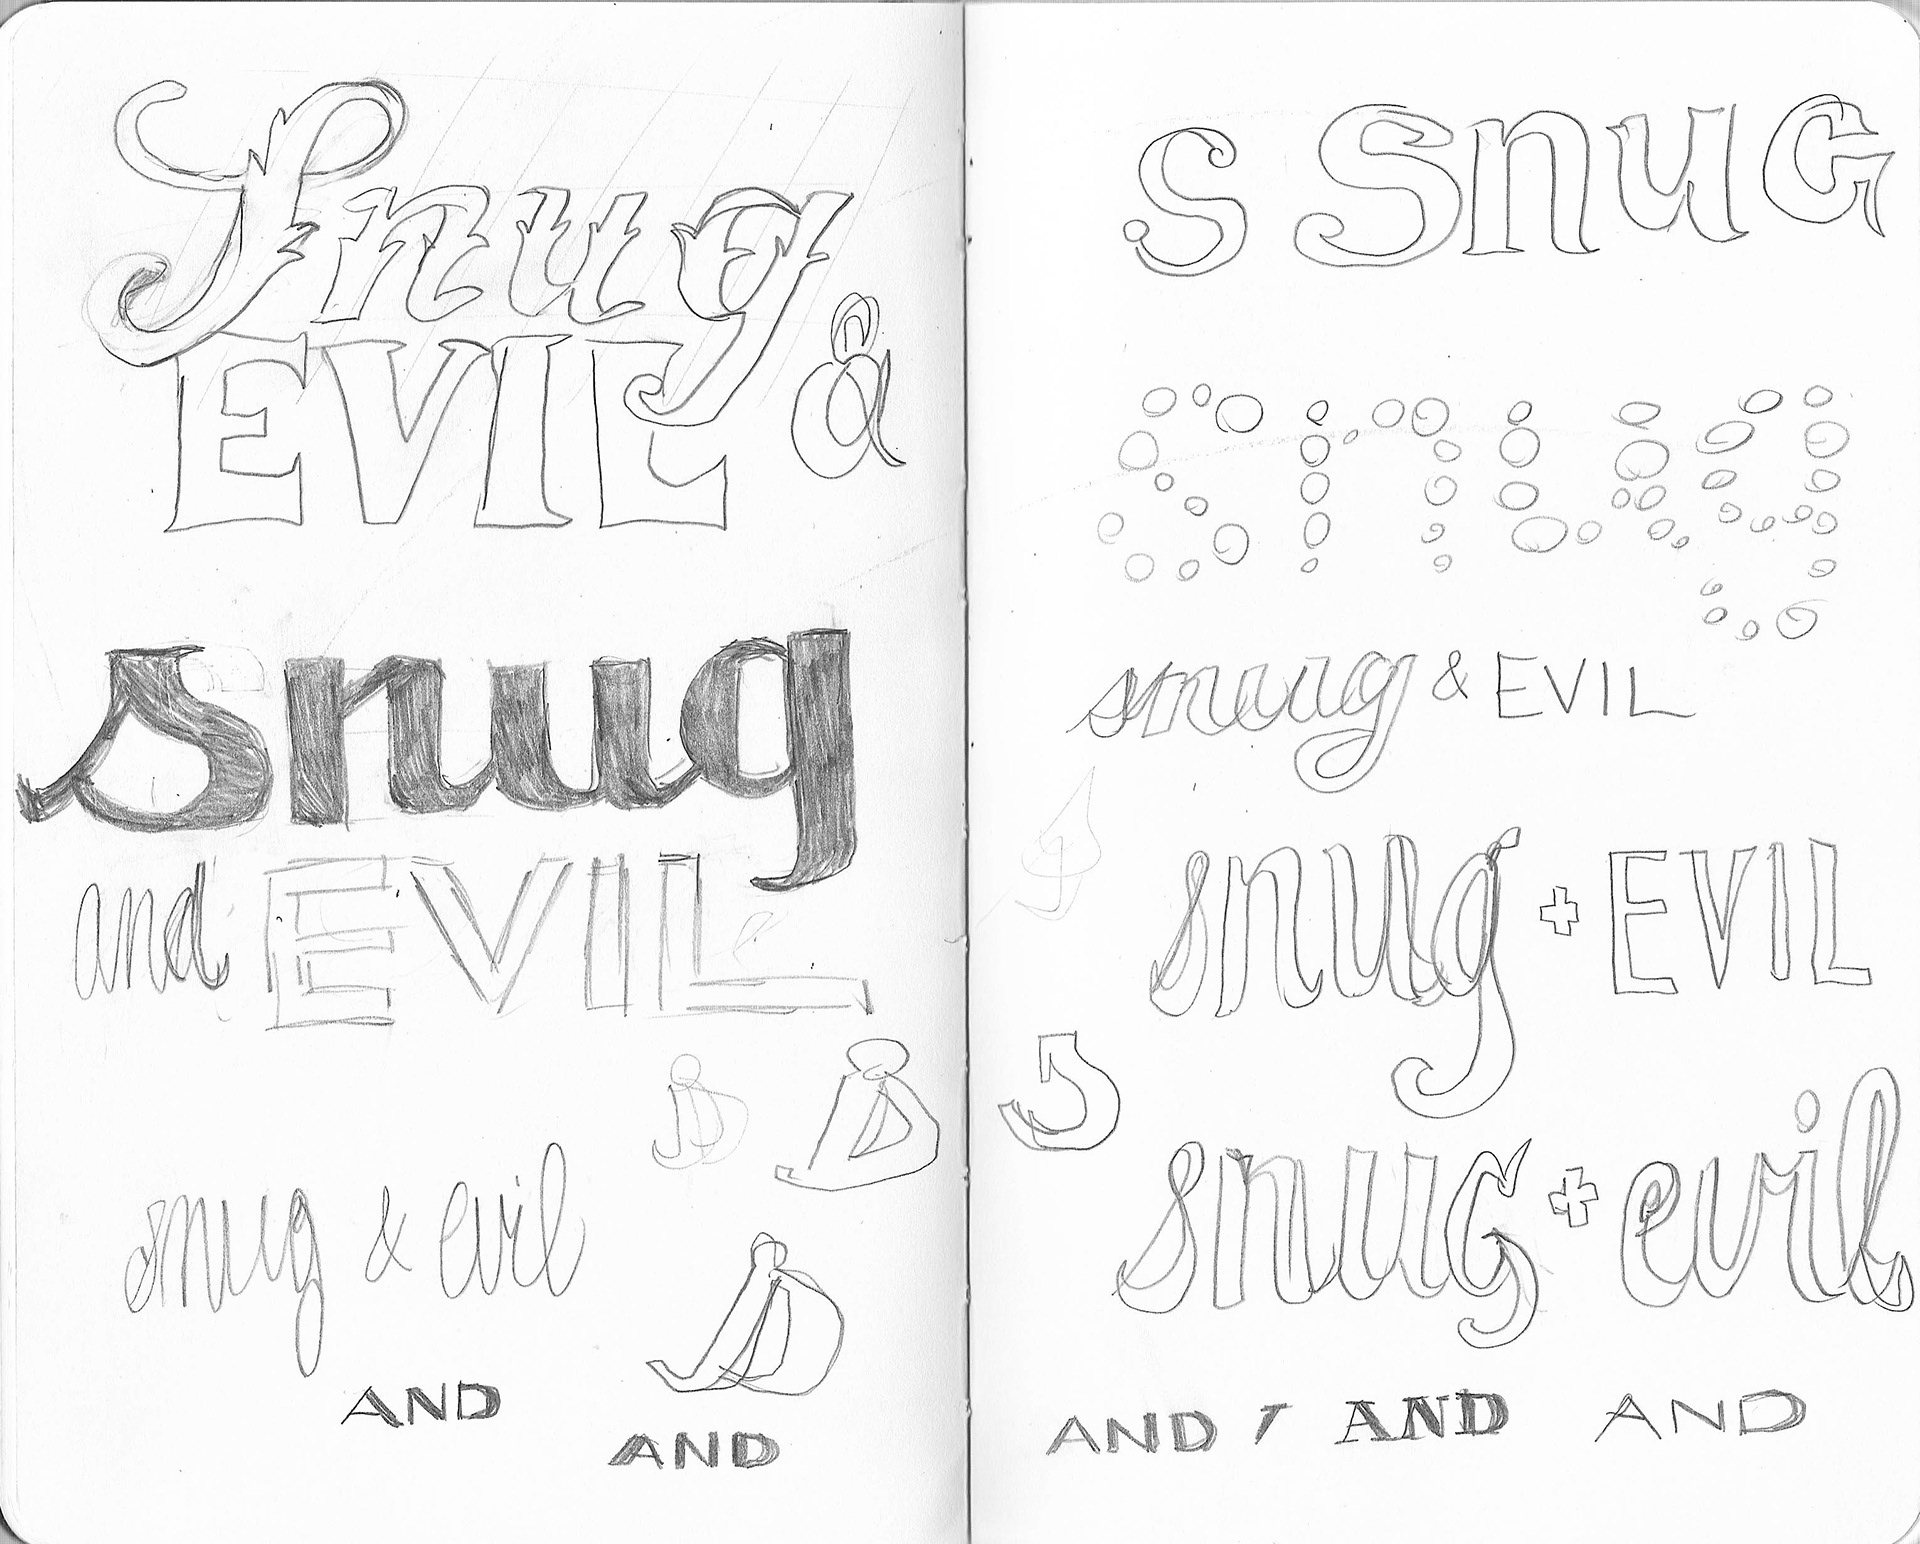 Snug
EVIL &
snug
and EVIL
snug & evil
AND
AND
S SnuG
snug
snug & EVIL
snug + EVIL
s
snuG + evil
AND AND AND